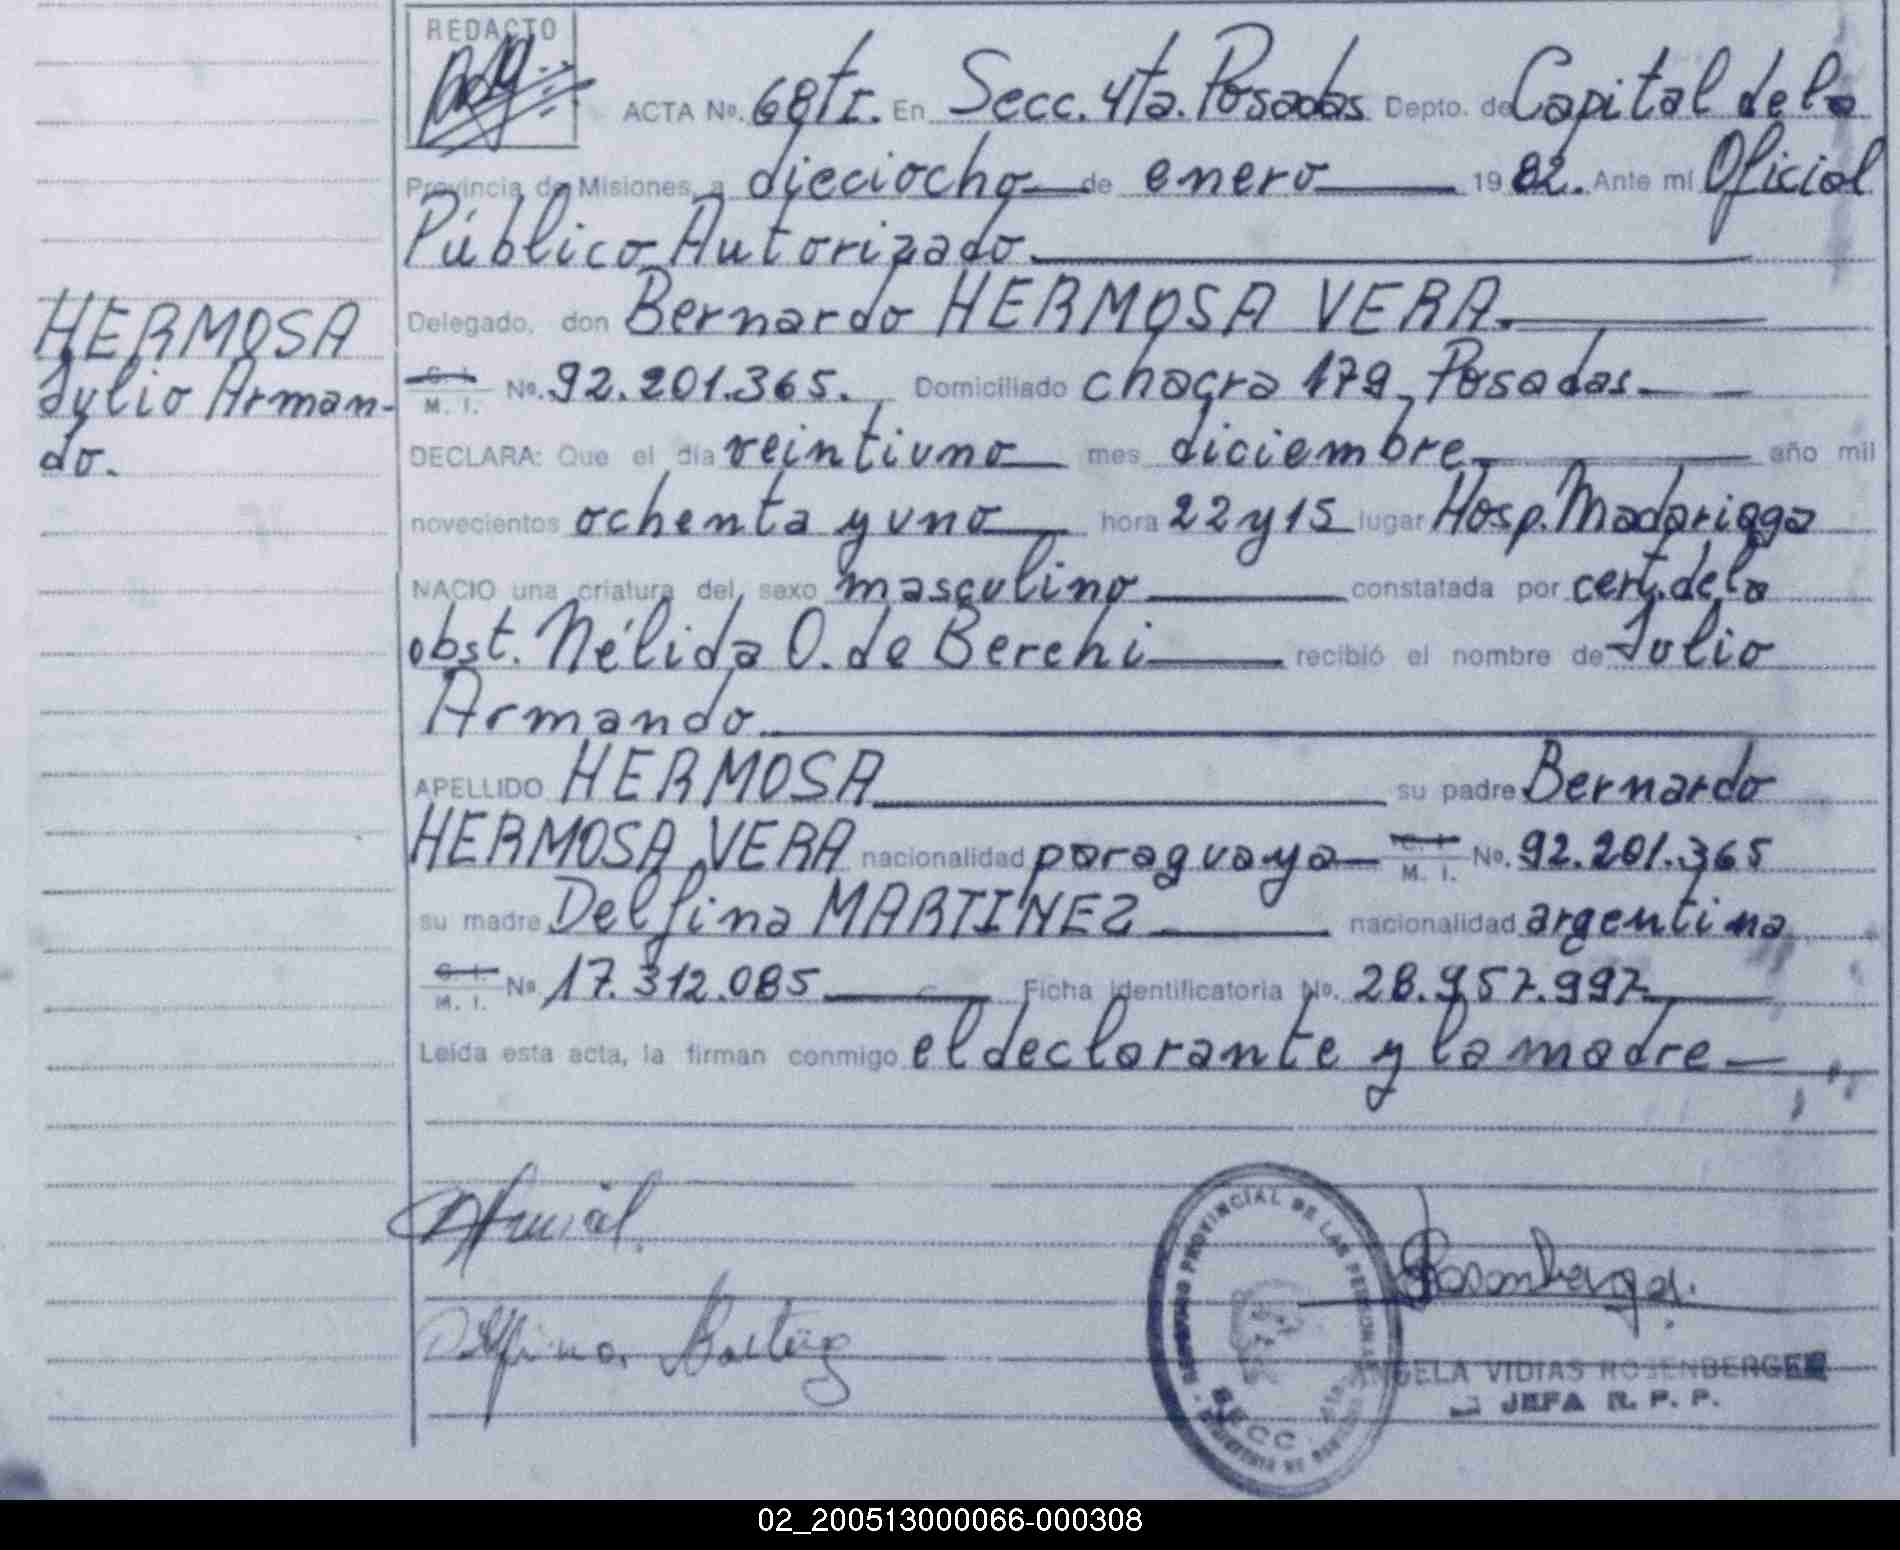 REDACTO
ACTA No. 68 tI. En Secc. 4ta. Posadas Depto. de Capital de la
Provincia de Misiones, a dieciocho de enero 1982. Ante mí Oficial
Público Autorizado
Delegado, don Bernardo HERMOSA VERA.
HERMOSA
Julio Arman-
do.
C. I.
M. I. No. 92.201.365. Domiciliado chacra 179, Posadas.
DECLARA: Que el día veintiuno mes diciembre año mil
novecientos ochenta y uno hora 22 y 15 lugar Hosp. Madariaga
NACIO una criatura del sexo masculino constatada por cert. de la
obst. Nélida O. de Berchi recibió el nombre de Julio
Armando.
APELLIDO HERMOSA su padre Bernardo
HERMOSA VERA nacionalidad paraguaya C. I. M. I. No. 92.201.365
su madre Delfina MARTINEZ nacionalidad argentina
C. I. M. I. No. 17.312.085 Ficha identificatoria No. 28.957.997
Leída esta acta, la firman conmigo el declarante y la madre
REGISTRO PROVINCIAL DE LAS PERSONAS
SECC
ANGELA VIDIAS ROSENBERGER
JEFA R. P. P.
02_200513000066-000308